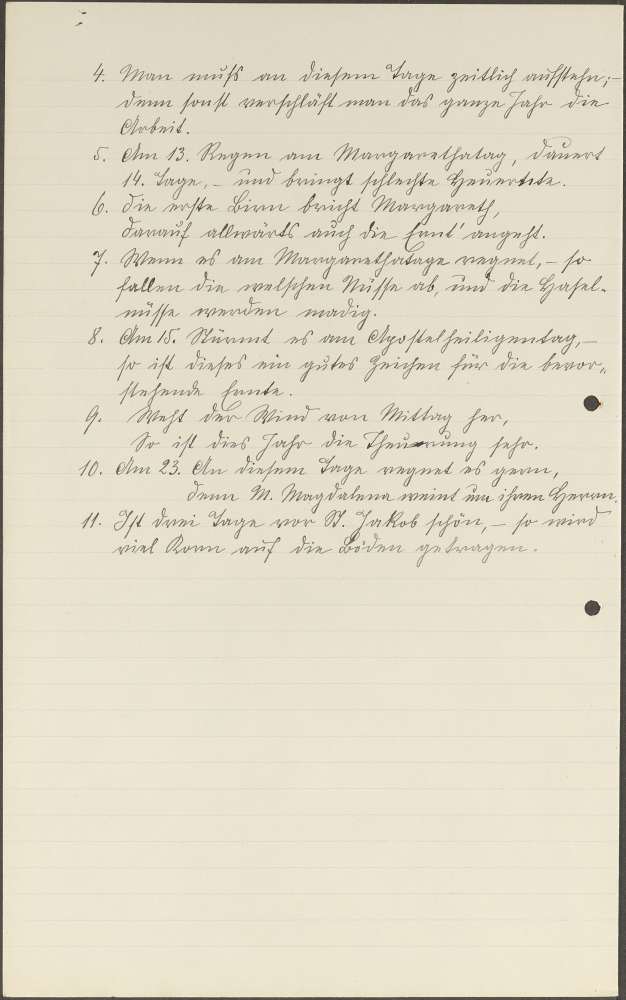 4. Man muſs an diesem Tage zeitlich aufstehn; –
denn sonst verschläft man das ganze Jahr die
Arbeit.
5. Am 13. Regen am Margarethatag, dauert
14. Tage, – und bringt schlechte Heuernte.
6. Die erste Birn bricht Margareth,
darauf allwärts auch die Ernt' angeht.
7. Wenn es am Margarethatage regnet, – so
fallen die welschen Nüsse ab, und die Hasel-
nüsse werden madig.
8. Am 15. Stürmt es am Apostelheiligentag, –
so ist dieses ein gutes Zeichen für die bevor-
stehende Ernte.
9. Weht der Wind von Mittag her,
So ist dies Jahr die Theuerung sehr.
10. Am 23. An diesem Tage regnet es gern,
denn M. Magdalena weint um ihren Herrn.
11. Ist drei Tage vor St. Jakob schön, – so wird
viel Korn auf die Böden getragen.